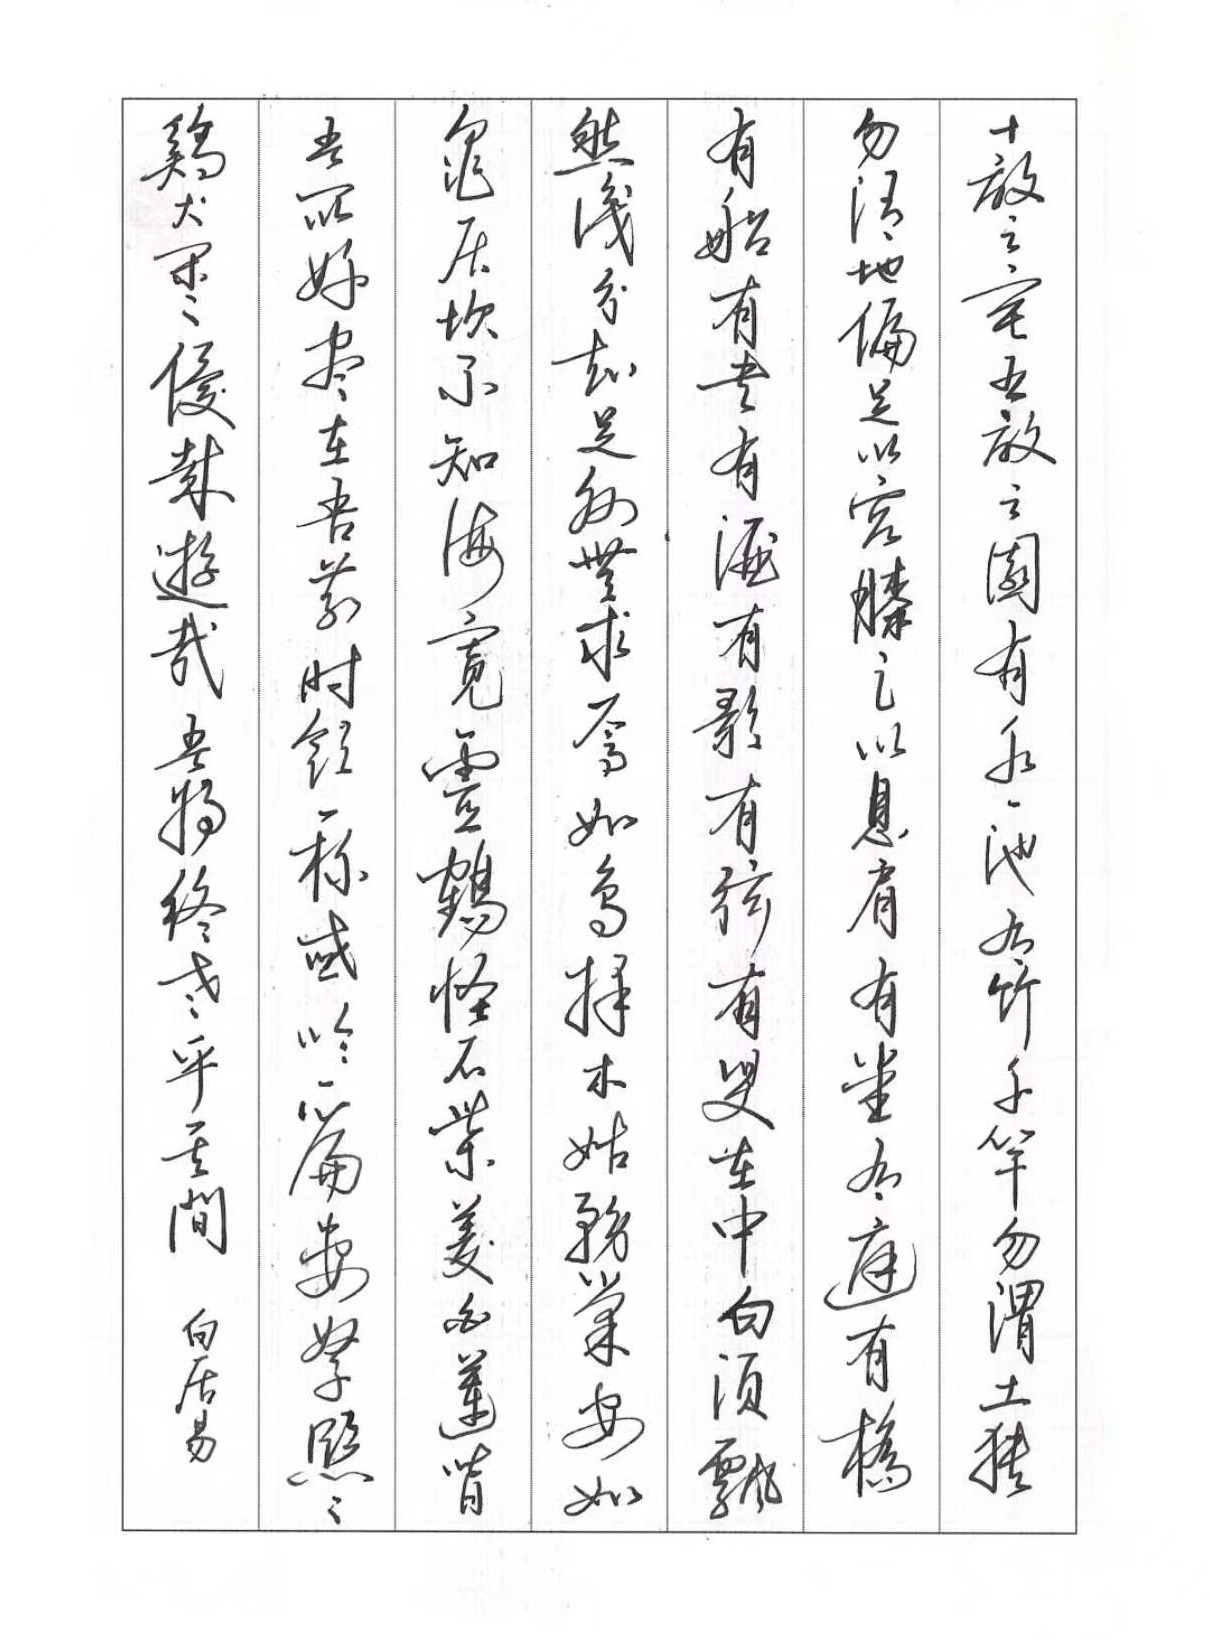 十畝之宅五畝之園有水一池有竹千竿勿謂土狹
勿謂地偏足以容膝足以息肩有堂有庭有橋
有船有书有酒有歌有弦有叟在中白须飄
然识分知足外無求焉如鳥择木姑務巢安如
龟居坎不知海寬靈鶴怪石紫菱白蓮皆
吾所好尽在吾前时飲一杯或吟一篇妻孥熙々
鷄犬闲々優哉遊哉吾将終老乎其間 白居易